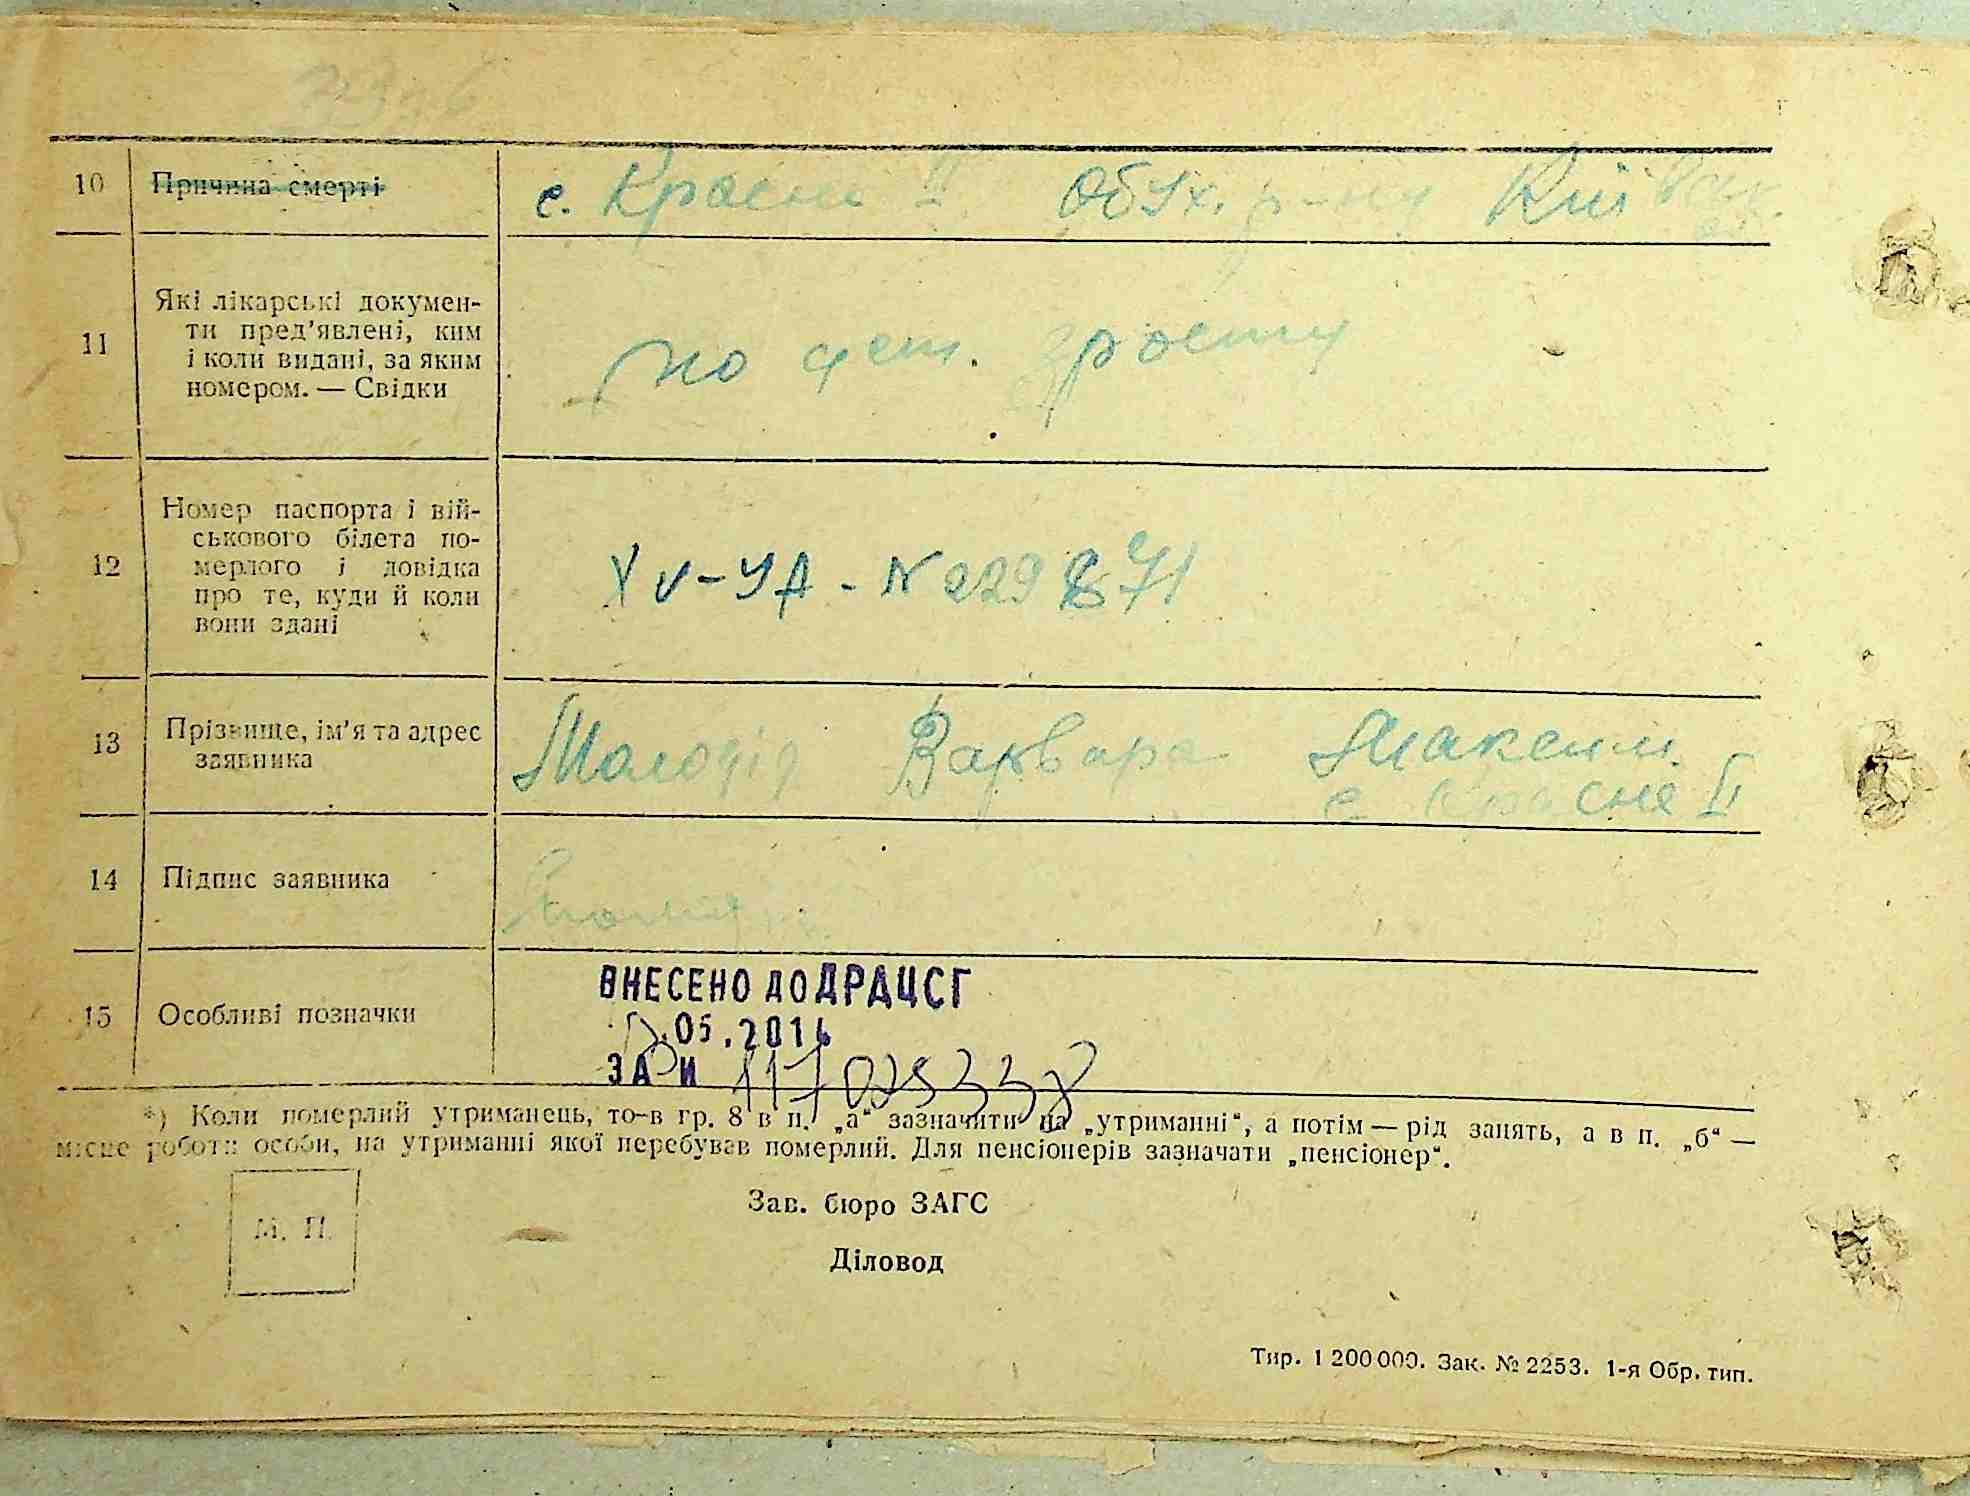 10 Причина смерті с. Красне ІІ Обух. р-ну Київ
11 Які лікарські докумен-
ти пред'явлені, ким
і коли видані, за яким
номером. — Свідки
по
12 Номер паспорта і вій-
ськового білета по-
мерлого і довідка
про те, куди й коли
вони здані
XV-УА-N 229871
13 Прізвище, ім'я та адрес
заявника
Молодід Варвара Максим.
с Красне ІІ
14 Підпис заявника
15 Особливі позначки
ВНЕСЕНО ДО ДРАЦСГ
.05.2016
ЗА
*) Коли померлий утриманець, то-в гр. 8 в п. „а“ зазначити на „утриманні“, а потім — рід занять, а в п. „б“ —
місце роботи особи, на утриманні якої перебував померлий. Для пенсіонерів зазначати „пенсіонер“.
Зав. бюро ЗАГС
М. П.
Діловод
Тир. 1 200 000. Зак. № 2253. 1-я Обр. тип.